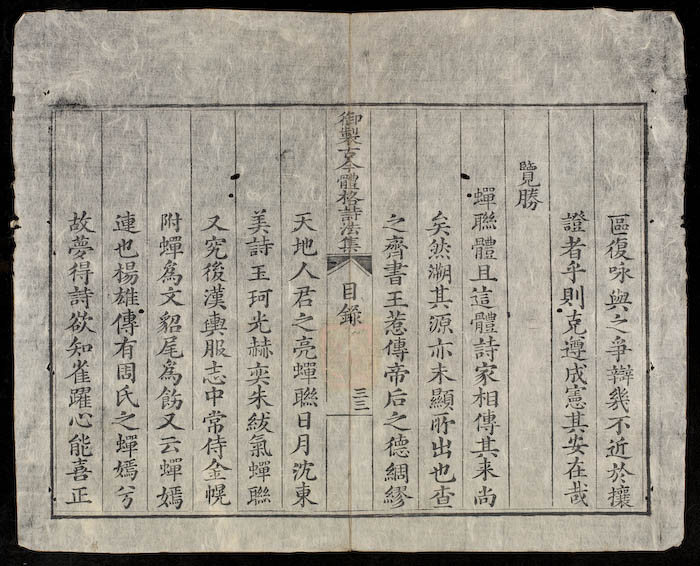 區復咏與之爭辯幾不近於攘
證者乎則克遵成憲其安在哉
覽勝
蟬聯體且這體詩家相傳其来尚
矣然溯其源亦未顯所出也查
之齊書王惹傳帝后之德綢繆
御製古今體格詩法集 目録 三三
天地人君之亮蟬聯日月沈東
美詩玉珂光赫奕朱紱氣蟬聯
又究後漢輿服志中常侍金幌
附蟬為文貂尾為飭又云蟬嫣
連也楊雄傳有周氏之蟬嫣兮
故夢得詩欲知雀躍心能喜正